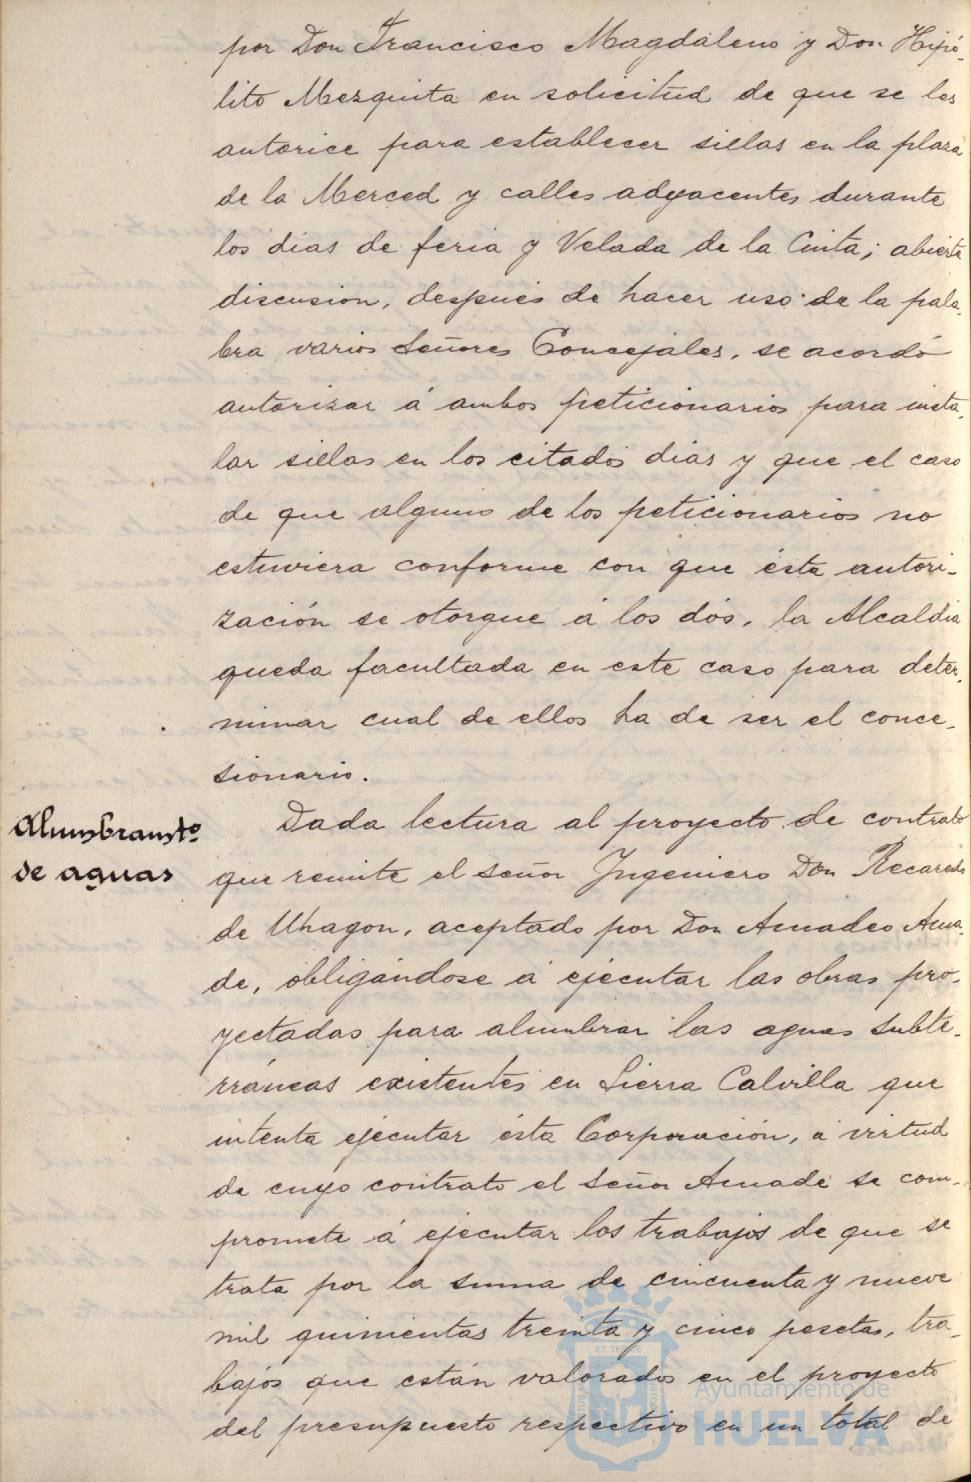 por Don Francisco Magdaleno y Don Hipó-
lito Mezquita en solicitud de que se les
autorice para establecer sillas en la plaza
de la Merced y calles adyacentes durante
los dias de feria y Velada de la Cinta; abierta
discusion, después de hacer uso de la pala-
bra varios Señores Concejales, se acordó
autorizar á ambos peticionarios para insta-
lar sillas en los citados dias y que el caso
de que alguno de los peticionarios no
estuviera conforme con que ésta autori-
zación se otorgue á los dós, la Alcaldia
queda facultada en este caso para deter-
minar cual de ellos ha de ser el conce-
sionario.
Alumbramto
de aguas
Dada lectura al proyecto de contrato
que remite el señor Ingeniero Don Recaredo
de Uhagon, aceptado por Don Amadeo Ama-
de, obligándose á ejecutar las obras pro-
yectadas para alumbrar las aguas subte-
rráneas existentes en Sierra Calvilla que
intenta ejecutar ésta Corporación, á virtud
de cuyo contrato el señor Amade se com-
promete á ejecutar los trabajos de que se
trata por la suma de cincuenta y nueve
mil quinientas treinta y cinco pesetas, tra-
bajos que están valorados en el proyecto
del presupuesto respectivo en un total de
Ayuntamiento de
HUELVA